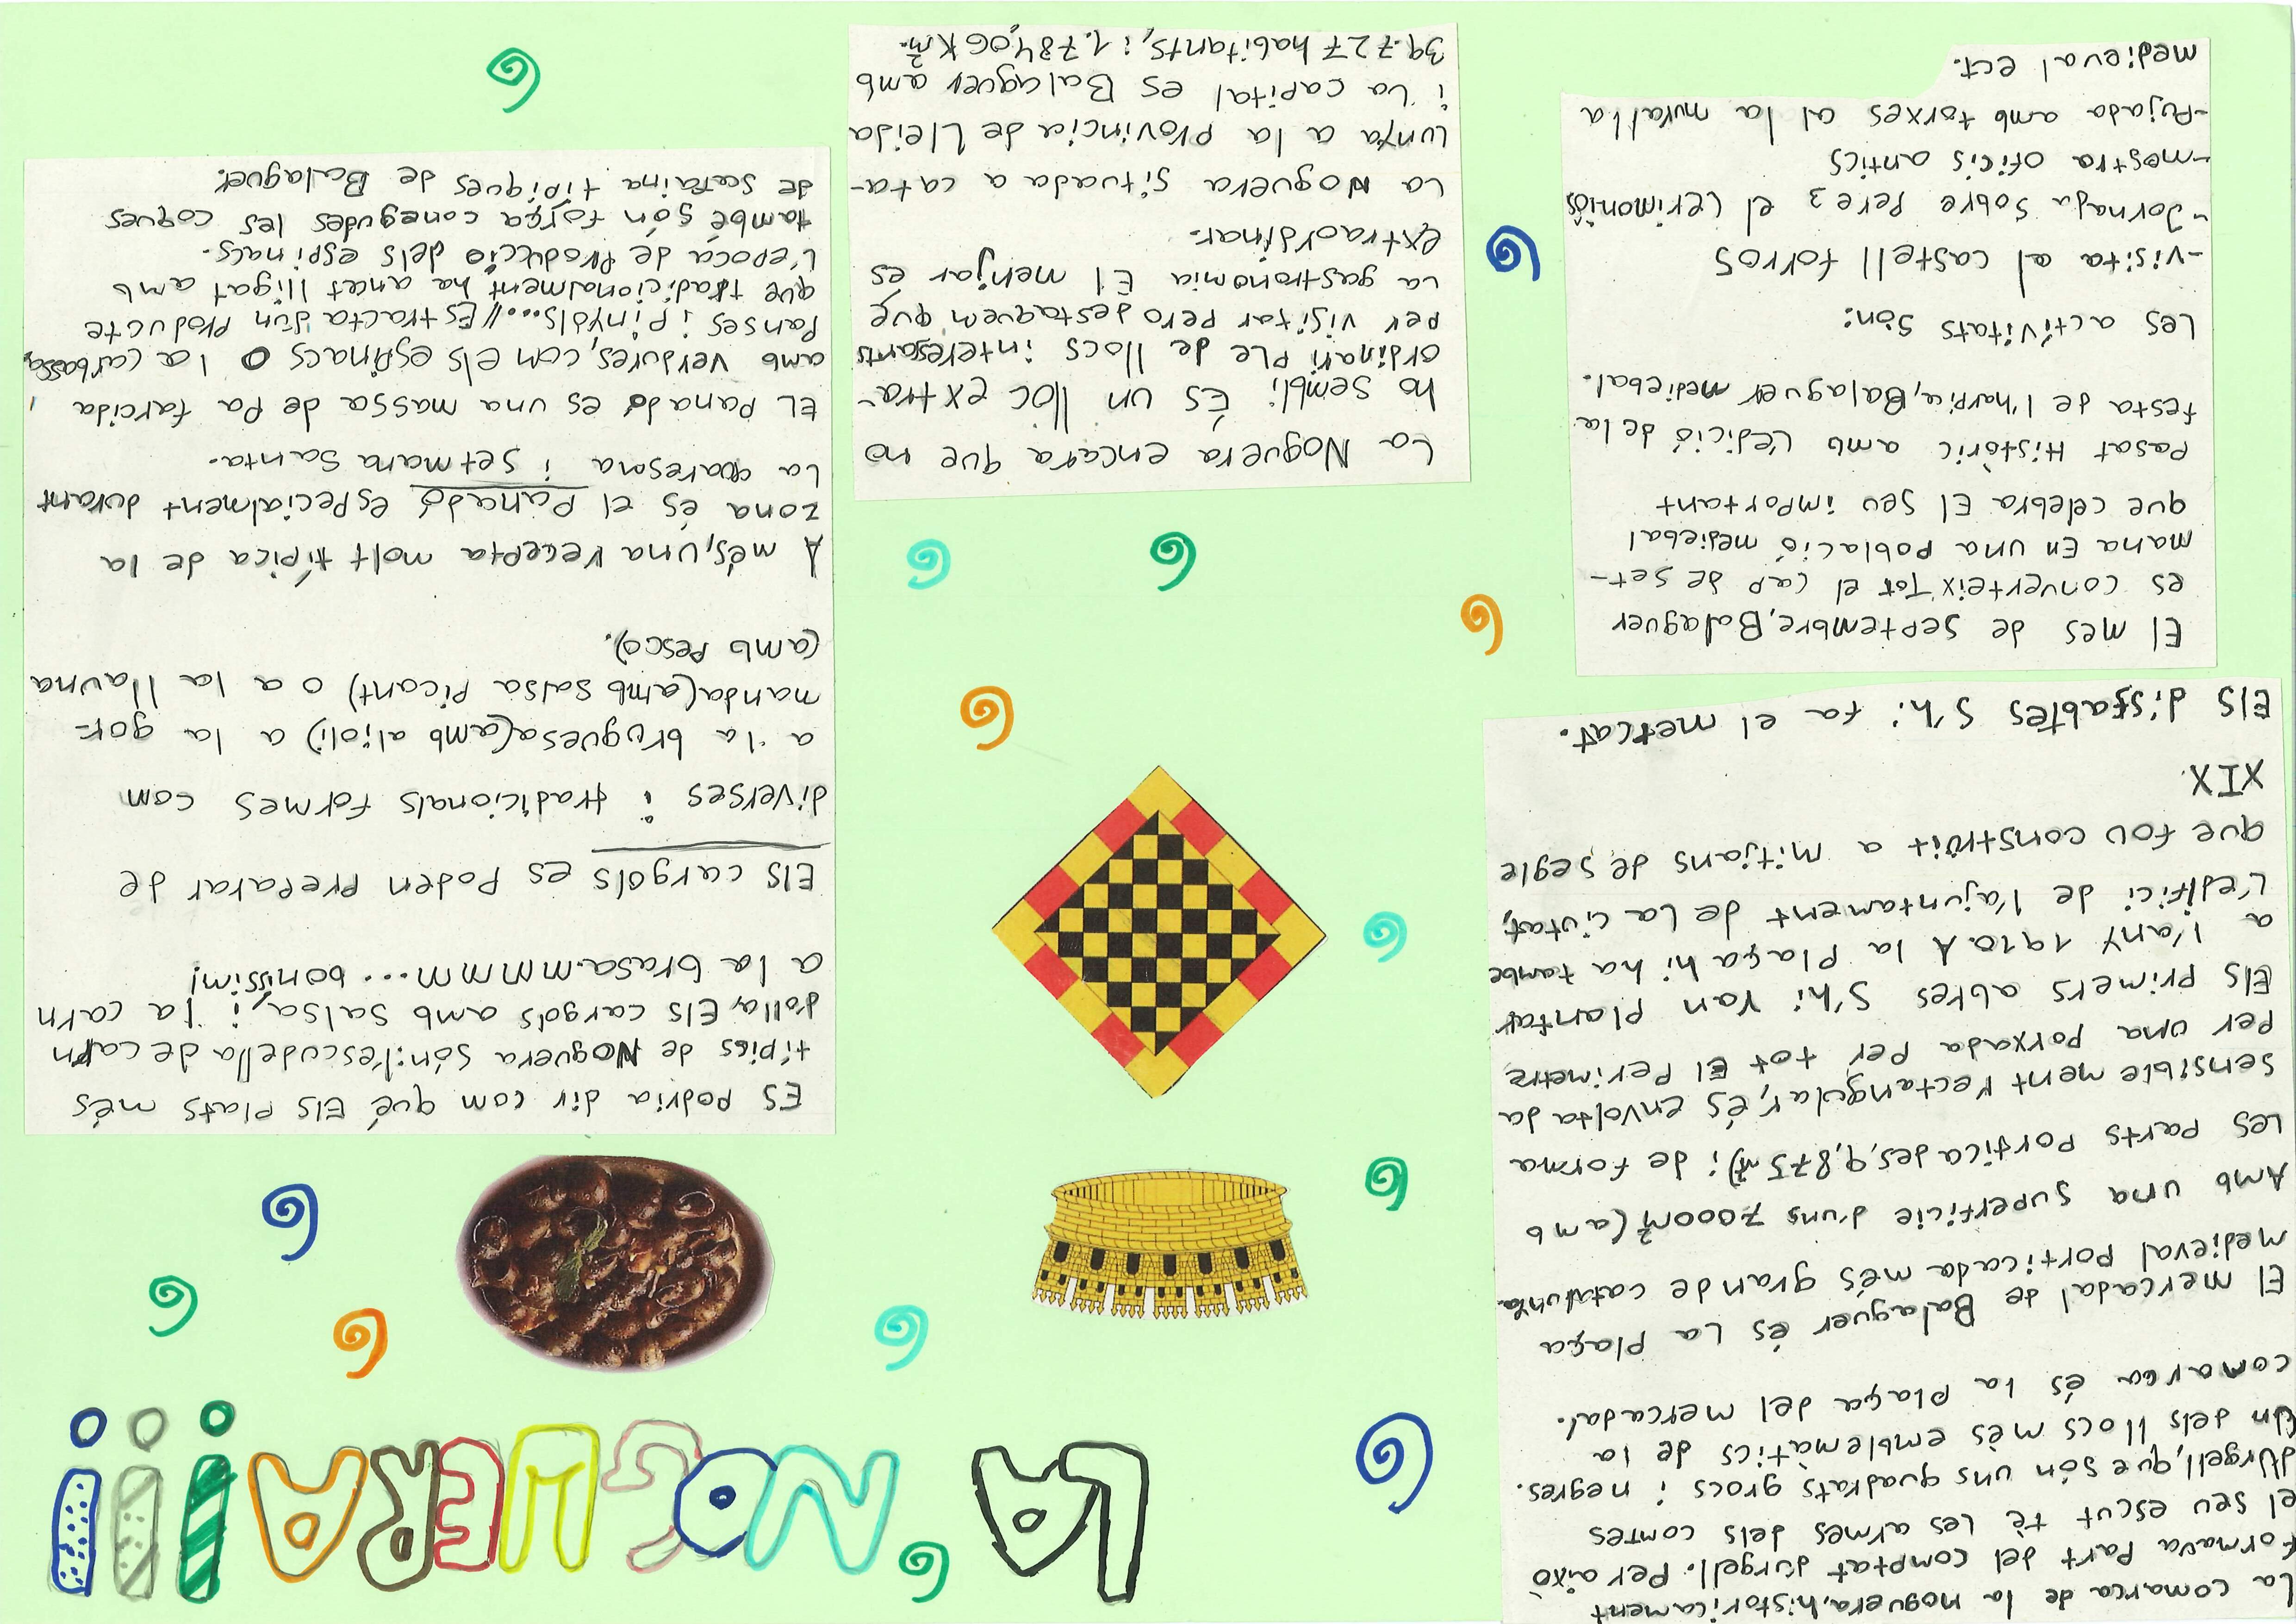 LA NOGUERA!!!
La comarca de la noguera, historicament
formava Part del comptat d'urgell. Per això
el seu escut tè les armes dels comtes
d'Urgell, que són uns quadrats grocs i negres.
Un dels llocs mès emblemàtics de la
comarca és la Plaça del mercadal.
El mercadal de Balaguer és La Plaça
medieval Porticada més gran de catalunya.
Amb una superfície d'uns 7000m² (amb
Les Parts Porticades, 9,875m²) i de forma
sensiblement rectangular, és envoltada
Per una porxada per tot El Perímetre
Els Primers arbres s'hi van Plantar
a l'any 1910 A la Plaça hi ha també
L'edifici de l'ajuntament de la ciutat,
que fou construït a mitjans de segle
XIX.
Els dissabtes s'hi fa el mercat.
El mes de septembre, Balaguer
es converteix Tot el cap de set-
mana En una Població mediebal
que celebra El seu important
Pasat Històric amb L'edició de la
festa de l'harpia, Balaguer mediebal.
Les activitats són:
-visita al castell formos
-Jornaja sobre Pere 3 el Cerimoniòs
-mostra oficis antics
-Pujada amb torxes al la muralla
medieval ect.
La Noguera encara que no
ho sembli: És un lloc extra-
ordinari PLe de llocs interesants
per visitar pero destaquem que
La gastronomia El menjar es
extraordinar.
La Noguera situada a cata-
lunya a la Provincia de Lleida
i La capital es Balaguer amb
39.727 habitants, i 1.784,06 Km².
ES Podria dir com què Els Plats més
típics de Noguera són: l'escudella de carn
d'olla, Els cargols amb salsa, i la carn
a la brasa.mmmm... boníssim!
Els cargols es Poden Preparar de
diverses i tradicionals formes com
a la bruguesa(amb alioli) a la gor-
manda(amb salsa Picant) o a la llauna
(amb Pesco).
A més, una recepta molt típica de la
zona és el Panadó especialment durant
La quaresma i setmana santa.
EL Panadó es una massa de Pa farcida
amb verdures, com els espinacs o la carbassa,
Panses i pinyols...// Es tracta d'un Producte
que tradicionalment ha anat lligat amb
L'època de Producció dels espinacs.
també són força conegudes les coques
de samfaina típiques de Balaguer.